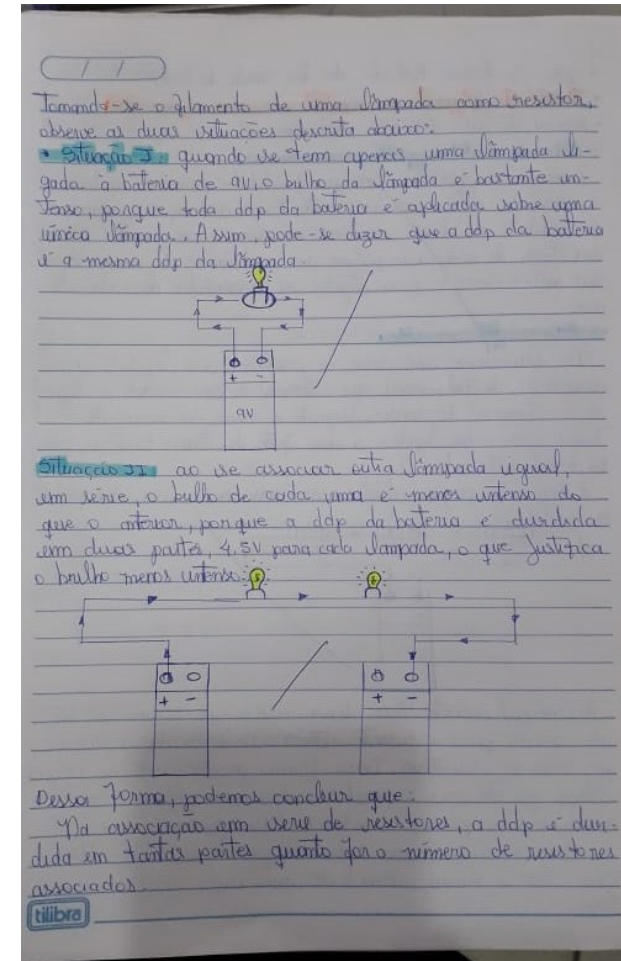 / /
Tomando-se o filamento de uma lâmpada como resistor,
observe as duas situações descrita abaixo:
• Situação I: quando se tem apenas uma lâmpada li-
gada à bateria de 9V, o bulho da lâmpada é bastante in-
tenso, porque toda ddp da bateria é aplicada sobre uma
única lâmpada. Assim, pode-se dizer que a ddp da bateria
é a mesma ddp da lâmpada.
+ -
9V
Situação II: ao se associar outra lâmpada igual,
em série, o bulho de cada uma é menos intenso do
que o anterior, porque a ddp da bateria é dividida
em duas partes, 4,5V para cada lâmpada, o que justifica
o brilho menos intenso.
+ - + -
Dessa forma, podemos concluir que:
Na associação em série de resistores, a ddp é divi-
dida em tantas partes quanto for o número de resistores
associados.
tilibra